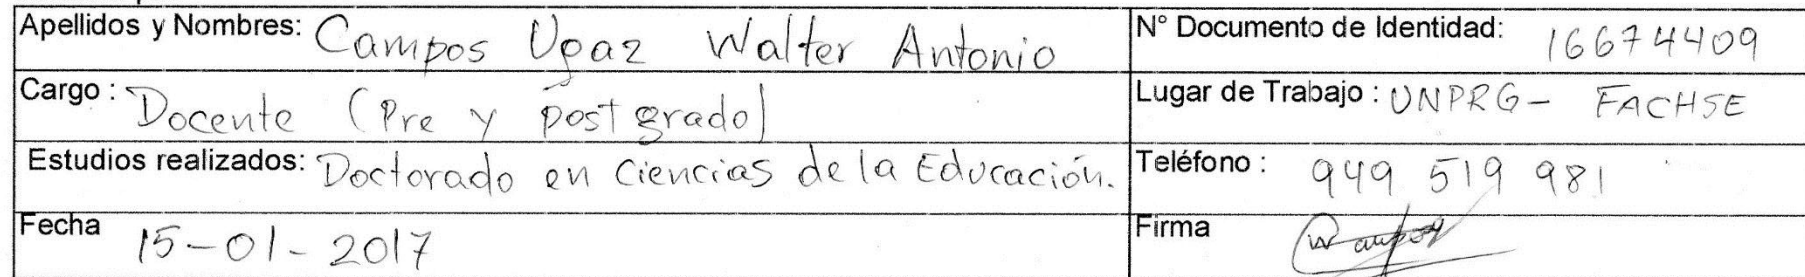 Apellidos y Nombres: Campos Ugaz Walter Antonio
N° Documento de Identidad: 16674409
Cargo : Docente (Pre y post grado)
Lugar de Trabajo : UNPRG - FACHSE
Estudios realizados: Doctorado en Ciencias de la Educación.
Teléfono : 949 519 981
Fecha 15-01-2017
Firma